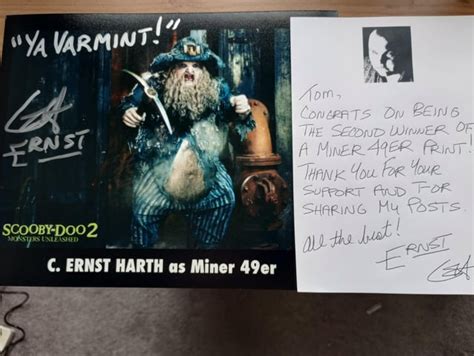 "YA VARMINT!"
ERNST
SCOOBY-DOO 2
MONSTERS UNLEASHED
C. ERNST HARTH as Miner 49er
TOM,
CONGRATS ON BEING
THE SECOND WINNER OF
A MINER 49ER PRINT!
THANK YOU FOR YOUR
SUPPORT AND FOR
SHARING MY POSTS.
All the best!
ERNST